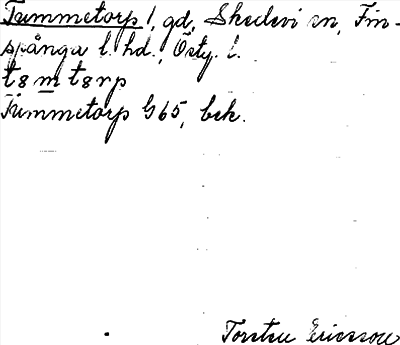 Tummetorp 1, gd, Skedevi sn, Fin-
spånga l. hd., Östg. l.
t8mt8rp
Tummetorp G65, bek.
Torsten Ericsson